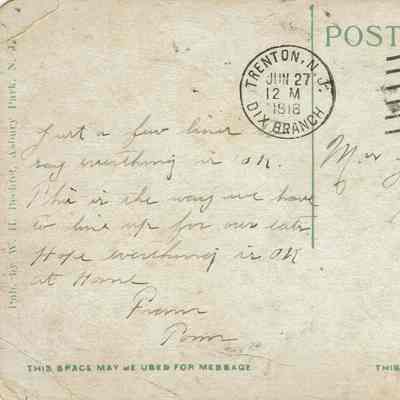 POST
TRENTON, N.J.
JUN 27
12 M
1918
DIX BRANCH
Just a few lines
say everything is OK.
This is the way we have
to line up for our eats
Hope everything is OK
at Home
From
Pub. by W. H. Becker, Asbury Park, N. J.
THIS SPACE MAY BE USED FOR MESSAGE
THIS